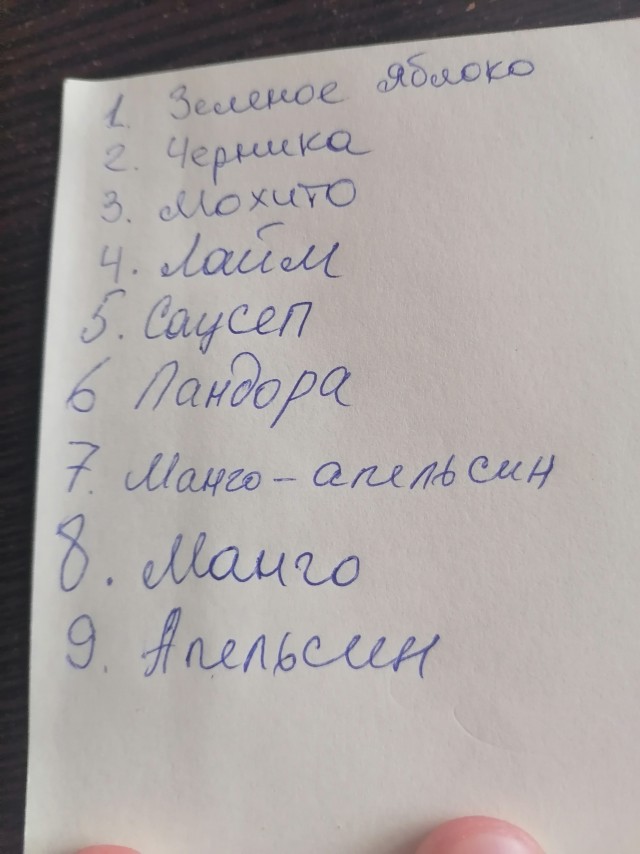 1. Зеленое яблоко
2. Черника
3. Мохито
4. Лайм
5. Саусеп
6 Пандора
7. Манго - апельсин
8. Манго
9. Апельсин